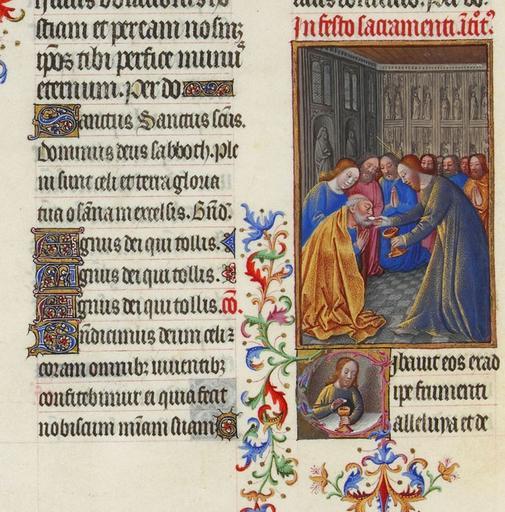 stiam et peream no smz
ipos tibi perfice munu
eternum. Per do
Sanctus Sanctus scūs.
Dominus deus sabboth. ple
ni sunt celi et terra gloria
tua osāna in excelsis. Bn̄d.
Agnus dei qui tollis.
Agnus dei qui tollis.
Agnus dei qui tollis. cō.
Benedicimus deum celi z
coram omnibz viventibz
confitebimur ei quia fecit
nobiscum miam suam
In festo sacramenti. ītit.
Cibavit eos ex ad
ipe frumenti
alleluya et de